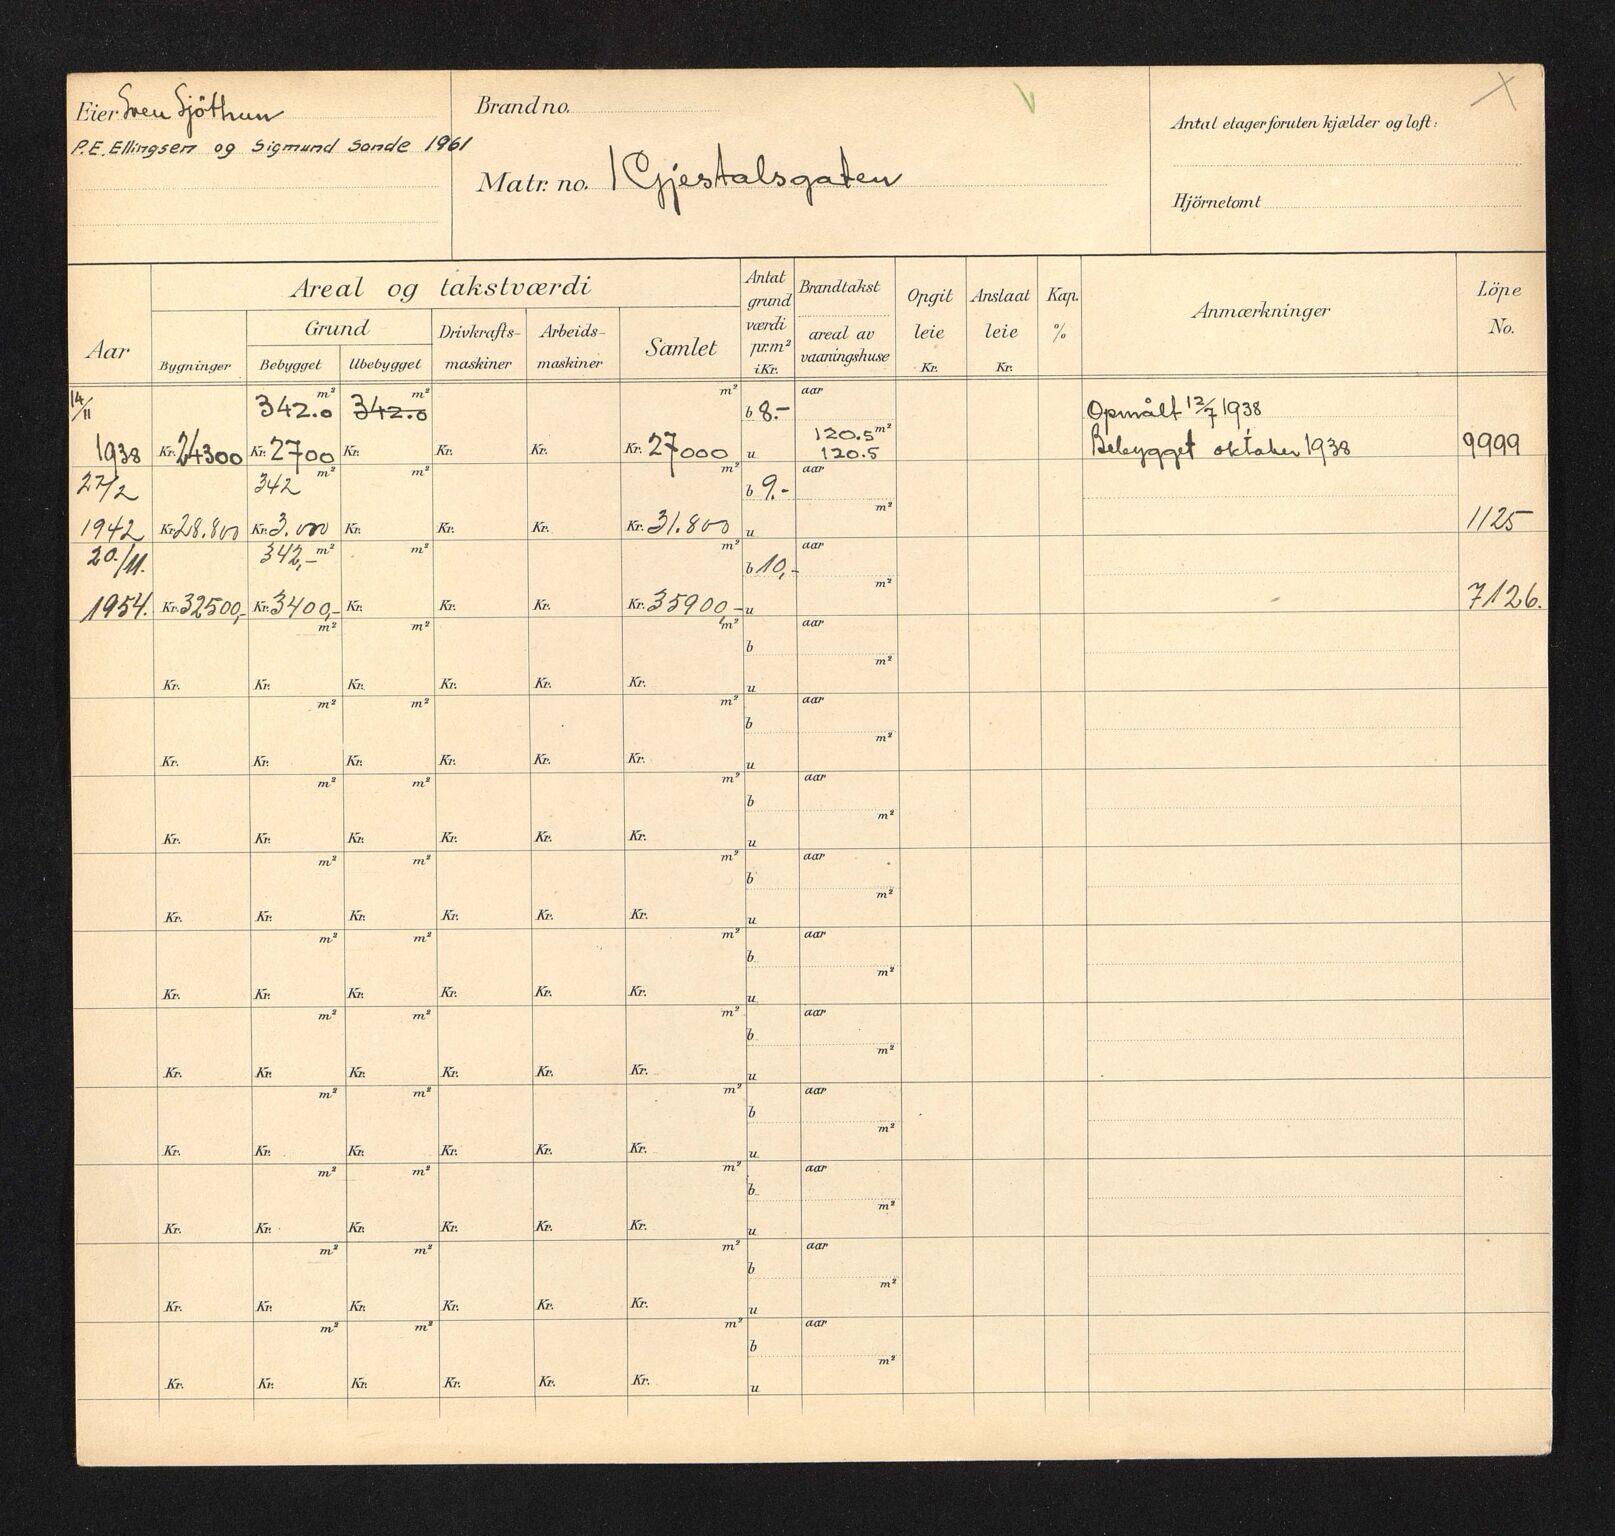 Eier Sven Sjöthun
P.E. Ellingsen og Sigmund Sande 1961
Brand no.
Matr. no. 1 Gjestalsgaten
Antal etager foruten kjælder og loft:
Hjörnetomt
Aar
Areal og takstværdi
Bygninger
Grund
Bebygget Ubebygget
Drivkrafts-maskiner
Arbeids-maskiner
Samlet
Antat grund værdi pr.m² i Kr.
Brandtakst
areal av vaaningshuse
Opgit leie Kr.
Anslaat leie Kr.
Kap. %
Anmærkninger
Löpe No.
14/11 342.0 m² 342.0 m² m² b 8.- aar Opmålt 12/7 1938
1938 Kr. 24300 Kr. 2700 Kr. Kr. Kr. Kr. 27000 u 120.5 m² 120.5 Bebygget oktober 1938 9999
27/2 342 m² m² m² b 9.- aar
1942 Kr. 28.800 Kr. 3.000 Kr. Kr. Kr. Kr. 31.800 u m² 1125
20./11. 342,- m² m² m² b 10,- aar
1954. Kr. 32500,- Kr. 3400,- Kr. Kr. Kr. Kr. 35900,- u m² 7126.
m² m² m² b aar
Kr. Kr. Kr. Kr. Kr. Kr. u m²
m² m² m² b aar
Kr. Kr. Kr. Kr. Kr. Kr. u m²
m² m² m² b aar
Kr. Kr. Kr. Kr. Kr. Kr. u m²
m² m² m² b aar
Kr. Kr. Kr. Kr. Kr. Kr. u m²
m² m² m² b aar
Kr. Kr. Kr. Kr. Kr. Kr. u m²
m² m² m² b aar
Kr. Kr. Kr. Kr. Kr. Kr. u m²
m² m² m² b aar
Kr. Kr. Kr. Kr. Kr. Kr. u m²
m² m² m² b aar
Kr. Kr. Kr. Kr. Kr. Kr. u m²
m² m² m² b aar
Kr. Kr. Kr. Kr. Kr. Kr. u m²
m² m² m² b aar
Kr. Kr. Kr. Kr. Kr. Kr. u m²